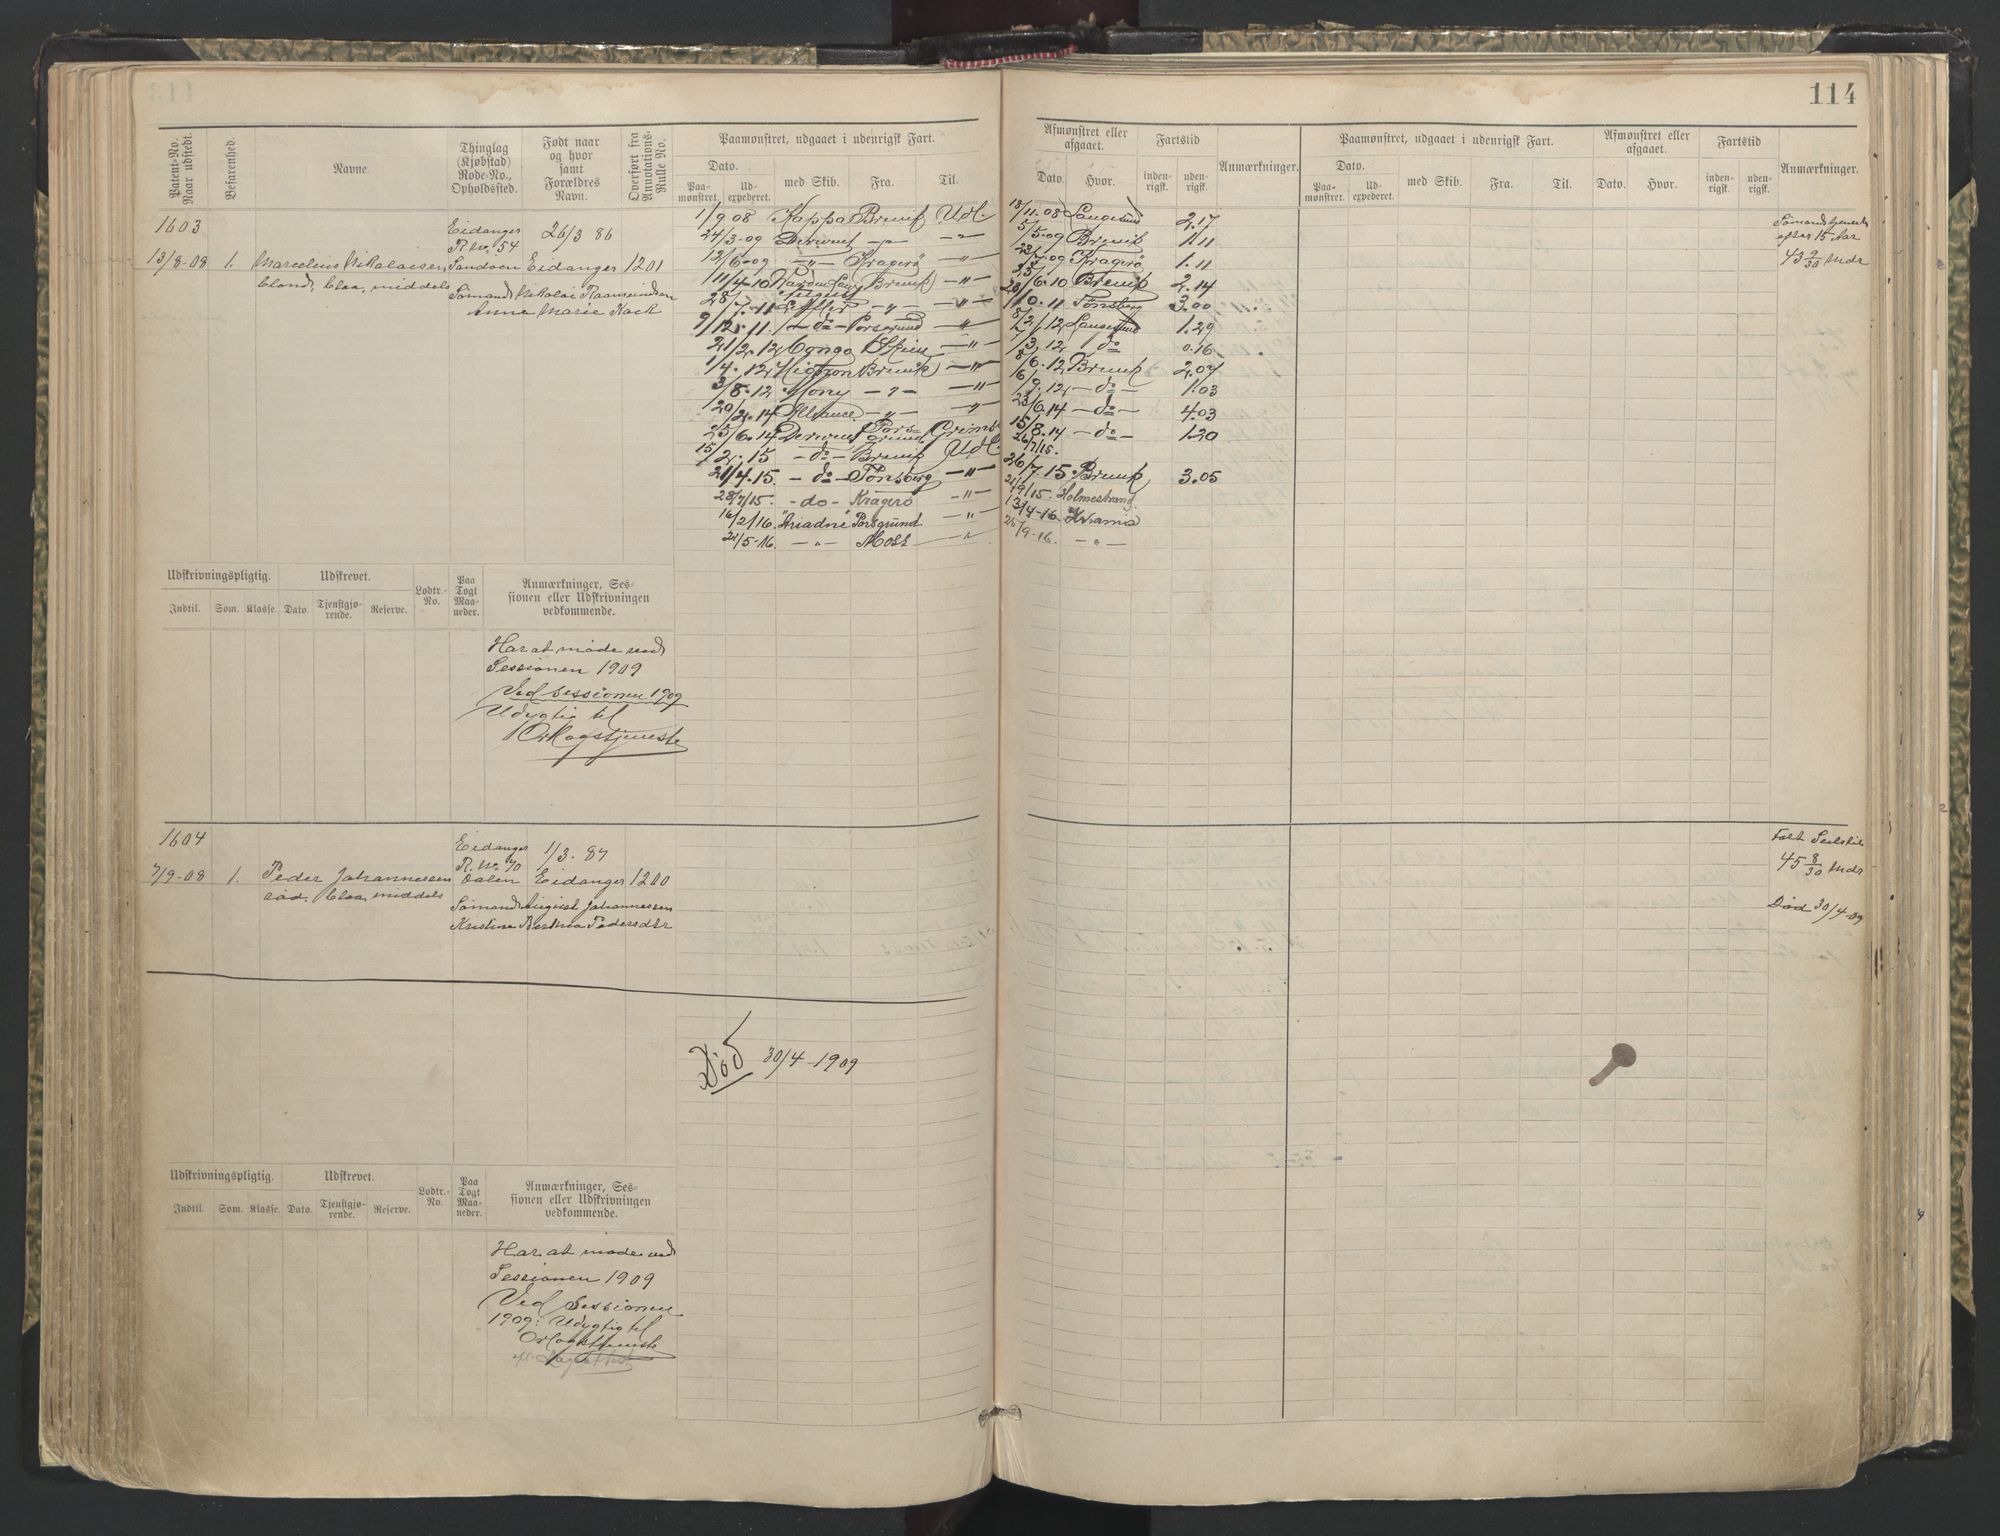 114
Patent-No. Naar udstedt.
Befarenhed.
Navne.
Thinglag (Kjøbstad) Rode-No., Opholdssted.
Født naar og hvor samt Forældres Navn.
Overført fra Annotations-Rulle No.
Paamønstret, udgaaet i udenrigsk Fart.
Dato.
Paamønstret.
Udexpederet.
med Skib.
Fra.
Til.
Afmønstret eller afgaaet.
Dato.
Hvor.
Fartstid
indenrigsk.
udenrigsk.
Anmærkninger.
Paamønstret, udgaaet i udenrigsk Fart.
Dato.
Paamønstret.
Udexpederet.
med Skib.
Fra.
Til.
Afmønstret eller afgaaet.
Dato.
Hvor.
Fartstid
indenrigsk.
udenrigsk.
Anmærkninger.
1603
Eidanger
R. No. 54
26/3 86
13/8-08 1. Marcelius Nikolaisen Sandøen Eidanger 1201
blond, blaa, middels
Sømand Nikolai Rasmussen
Anne Marie
1/9 08 Kappa Brevik Udl. 13/11-08 Langesund 2.17
24/3-09 Derwent -"- -"- 5/5-09 Brevik 1.11
12/6-09 -"- Kragerø -"- Kragerø 1.11
11/4-10 Brevik -"- Brevik 2.14
28/7-11 -"- -"- Tønsberg 3.00
9/12-11 -do- Porsgrund -"- Langesund 1.29
21/2-12 Congo Skien -"- 7/3 12 do 0.16
1/4-12 Brevik -"- 8/6-12 Brevik 2.07
3/8-12 -"- -"- 16/9-12 -do- 1.03
20/2-14 Alliance -"- -"- 23/6-14 -do- 4.03
25/6-14 Derwent Porsgrund Grims 15/8-14 -do- 1.20
15/2-15 -do- Brevik Udl. 26/7/15.
21/4-15 -do- Tønsberg -"- 26/7-15 Brevik 3.05
28/7/15 -do- Kragerø -"- 21/9/15. Holmestrand
16/2/16 "Ariadne" Porsgrund -"- 13/4-16 Kr.ania
21/5-16 -"- Moss -"- 25/9-16. -"-
Sømandstjeneste
efter 15 Aar
43 2/30 Mdr
Udskrivningspligtig.
Indtil.
Som.
Klasse.
Udskrevet.
Dato.
Tjenstgjørende.
Reserve.
Lodtr.-No.
Paa Togt Maaneder.
Anmærkninger, Sessionen eller Udskrivningen vedkommende.
Har at møde ved
Sessionen 1909
Ved Sessionen 1909
Udygtig til
Orlogstjeneste
1604
Eidanger
R. No. 70
1/3. 87
7/9-08 1. Peder Johannessen Dalen Eidanger 1200
rød, blaa, middels
Sømand August Johannessen
Kristine Berthea Pedersdtr
Fart Seilskib
45 8/30 Mdr
Død 30/4-09
Død 30/4-1909
Udskrivningspligtig.
Indtil.
Som.
Klasse.
Udskrevet.
Dato.
Tjenstgjørende.
Reserve.
Lodtr.-No.
Paa Togt Maaneder.
Anmærkninger, Sessionen eller Udskrivningen vedkommende.
Har at møde ved
Sessionen 1909
Ved Sessionen
1909: Udygtig til
Orlogstjeneste